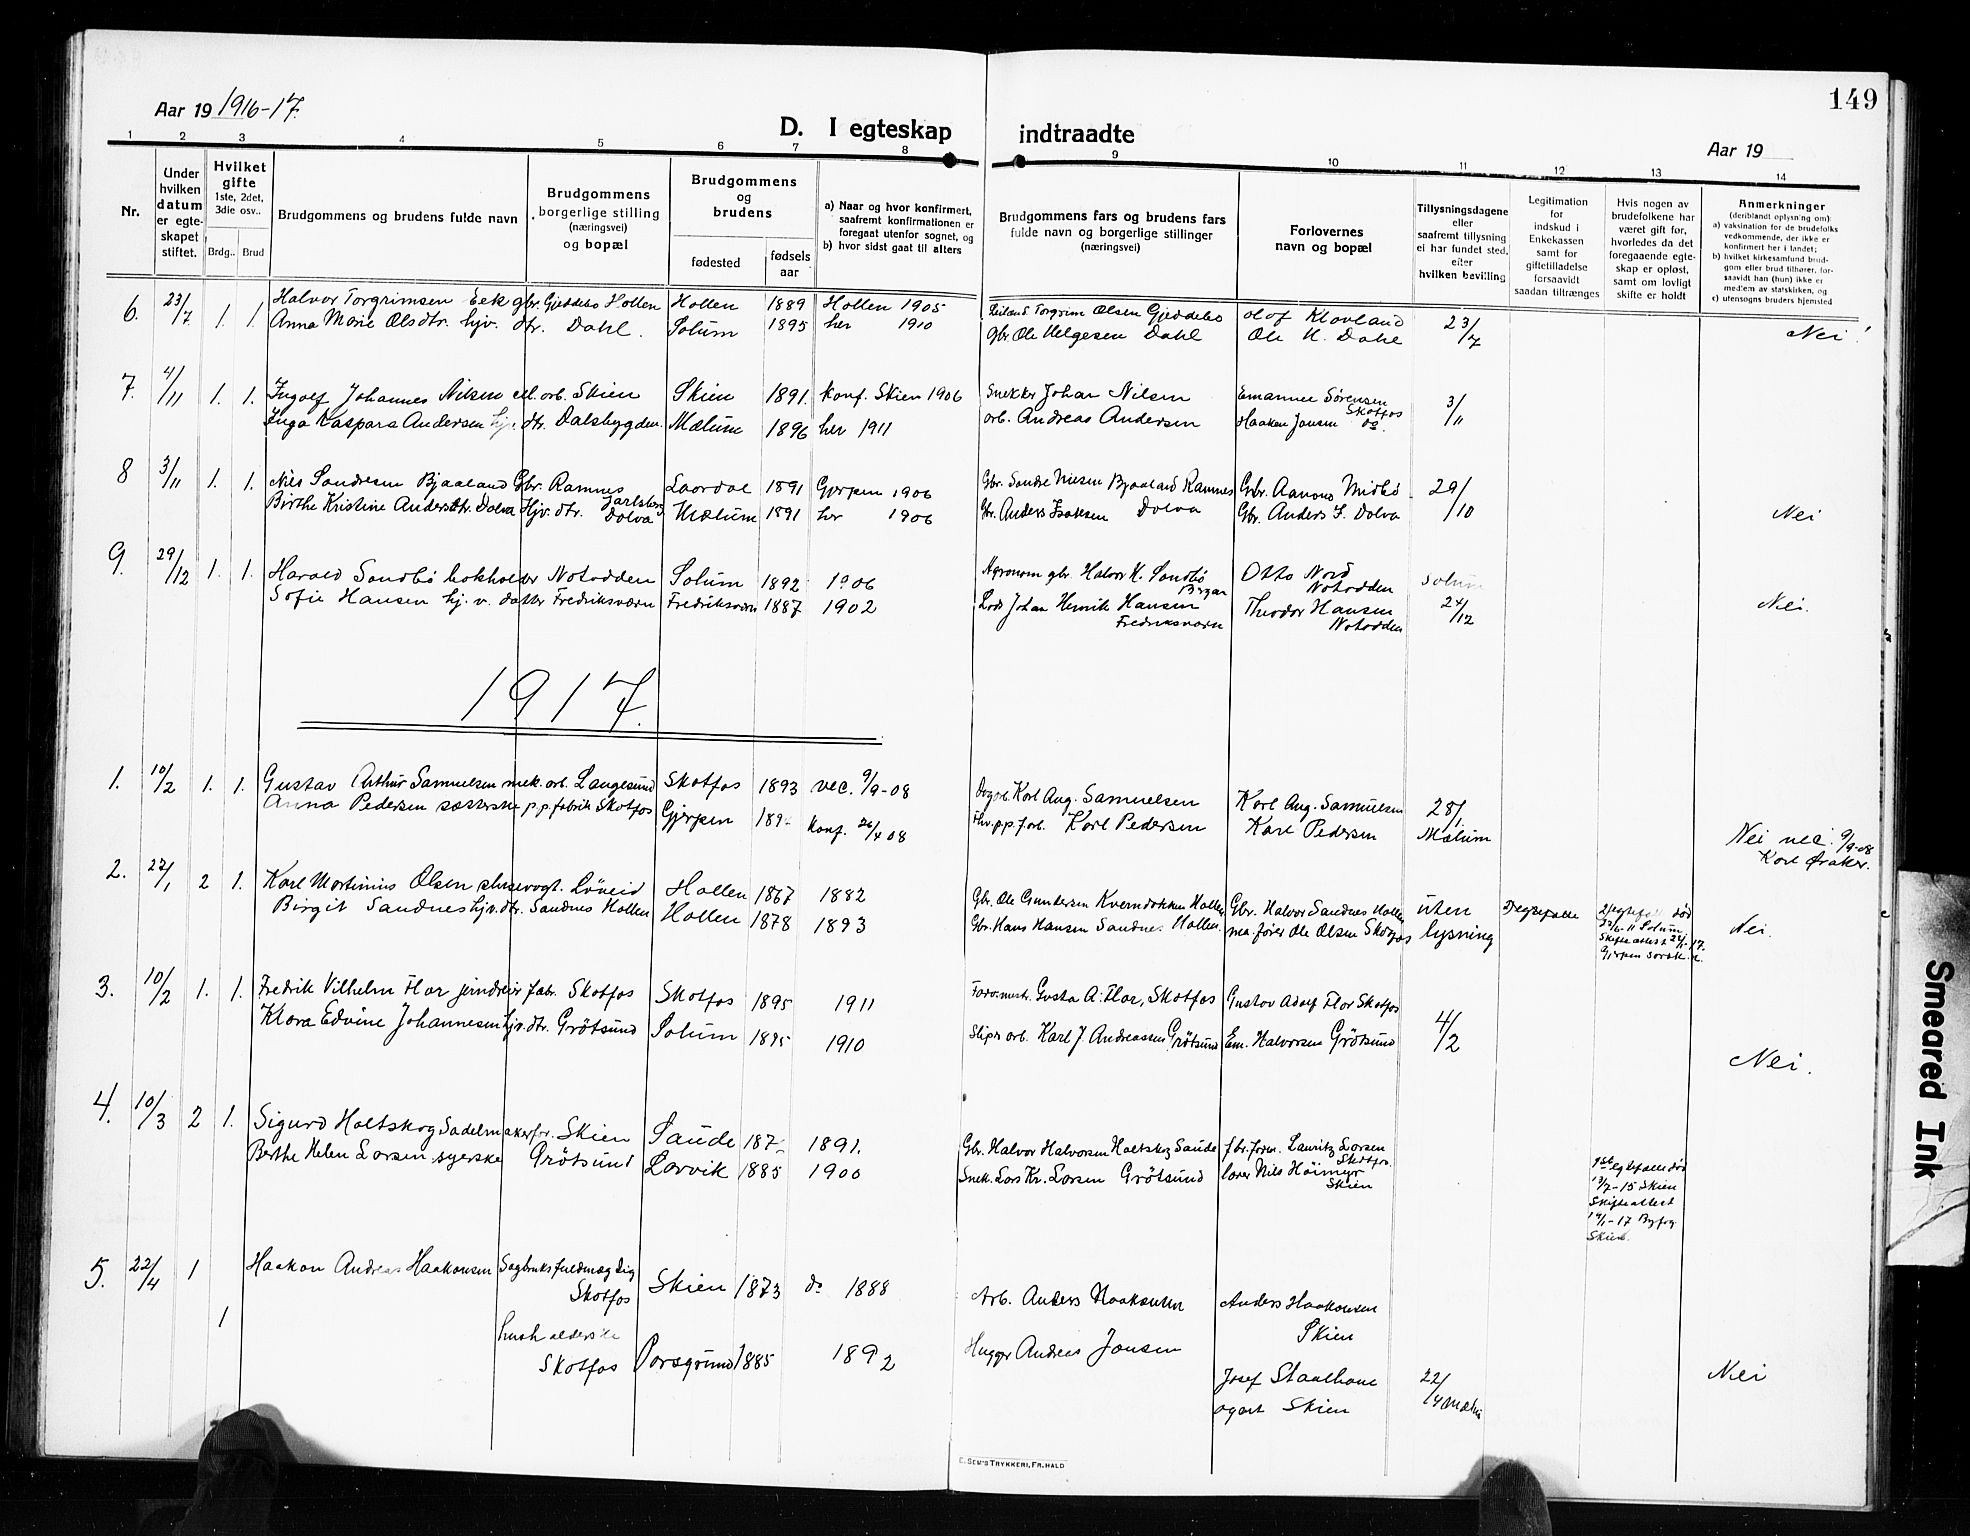 149
Aar 19 1916-17.
D. I egteskap indtraadte
Aar 19
1 2 3 4 5 6 7 8 9 10 11 12 13 14
Nr.
Under hvilken datum er egteskapet stiftet.
Hvilket gifte
1ste, 2det, 3die osv..
Brdg.. Brud
Brudgommens og brudens fulde navn
Brudgommens borgerlige stilling (næringsvei) og bopæl
Brudgommens og brudens
fødested
fødsels aar
a) Naar og hvor konfirmert, saafremt konfirmationen er foregaat utenfor sognet, og
b) hvor sidst gaat til alters
Brudgommens fars og brudens fars fulde navn og borgerlige stillinger (næringsvei)
Forlovernes navn og bopæl
Tillysningsdagene eller saafremt tillysning ei har fundet sted, efter hvilken bevilling
Legitimation for indskud i Enkekassen samt for giftetilladelse forsaavidt saadan tiltrænges
Hvis nogen av brudefolkene har været gift før, hvorledes da det foregaaende egteskap er opløst, samt om lovligt skifte er holdt
Anmerkninger
(deriblandt oplysning om)
a) vaksination for de brudefolks vedkommende, der ikke er konfirmert her i landet;
b) hvilket kirkesamfund brudgom eller brud tilhører, forsaavidt han (hun) ikke er medlem av statskirken, og
c) utensogns bruders hjemsted
6. 23/7 1. 1. Halvor Torgrimsen Eek gbr. Gjeddebo Hollen Hollen 1889 Hollen 1905 Torgrim Olsen Gjeddebo Olof Klovland 23/7
Anna Marie Olsdtr. hjv. dtr. Dahl. Solum 1895 her 1910 Gbr. Ole Helgesen Dahl Ole H. Dahl Nei!
7. 4/11 1. 1. Ingolf Johannes Nilsen el. arb. Skien Skien 1891. konf. Skien 1906 Snekker Johan Nilsen Emanuel Sörensen Skotfos 3/11
Inga Kaspara Andersen hjv. dtr. Dalsbygden. Mælum 1896 her 1911 arb. Andreas Andersen Haaken Jansen do.
8 3/11 1. 1. Nils Sondresen Bjaaland Gbr. Ramnes Jarlsberg Laardal 1891 Gjerpen 1906 Gbr. Sondre Nilsen Bjaaland Ramnes Gbr. Aanond Midbö 29/10
Birthe Kristine Andersdtr. Dolva Hjv. dtr. Dolva Mælum 1891 her 1906 Gbr. Anders Isaksen Dolva Gbr. Anders I. Dolva Nei
9. 29/12 1. 1. Harald Sandbö bokholder Notodden Solum 1892 1906 Agronom gbr. Halvor H. Sandbö Otto Nord Notodden Solum 24/12
Sofie Hansen hj. v. datter Fredriksværn Fredriksværn 1887 1902 Lods Johan Henrik Hansen Fredriksværn Theodor Hansen Notodden Nei.
1917.
1. 10/2 1. 1. Gustav Arthur Samuelsen mek. arb. Langesund Skotfos 1893 vac. 9/9-08 Karl Aug. Samuelsen Karl Aug. Samuelsen 28/1
Anna Pedersen p.p.fabrik Skotfos Gjerpen konf. 26/4 08 Karl Pedersen Karl Pedersen Mælum Nei vac. 9/9-08
2. 27/1 2 1. Karl Martinius Olsen slusevogt. Löveid Hollen 1867 1882 Gbr. Ole Gundersen Kverndokken Hollen Gbr. Halvor Sandnes Hollen uten
Birgit Sandnes hjv. dtr. Sandnes Hollen Hollen 1878 1893 Gbr. Hans Hansen Sandnes Hollen. Ole Olsen Skotfos lysning Nei.
3. 10/2 1. 1. Fredrik Vilhelm Flor jerndreier fabr. Skotfos Skotfos 1895 1911 Gusta A. Flor, Skotfos Gustav Adolf Flor Skotfos 4/2
Klara Edvine Johannesen hjv. dtr. Grötsund Solum 1895 1910 Sliper arb. Karl J. Andreassen Grötsund Em. Halvorsen Grötsund Nei.
4. 10/3 2 1. Sigurd Holtskog Sadelmaker for. Skien Saude 1891. Gbr. Halvor Halvorsen Holtskog Saude fbr. form. Lauritz Larsen Skotfos
Berthe Helen Larsen syerske Grötsund Larvik 1885 1900 Snek. Lars Kr. Larsen Grötsund Nils Höimyr Skien
1ste egtefælle död
13/7-15 Skien
Skifteattest
Skien.
5. 22/4 1 Haakon Andreas Haakonsen Sagbruksfuldmægtig Skotfos Skien 1873 do 1888 Arb. Anders Haakonsen Anders Haakonsen Skien
1 husholderske Skotfos Porsgrund 1885 1892 Hugger Andreas Jansen
Josef Staalhane 22/4 Nei
agent Skien
E. SEM'S TRYKKERI, FR.HALD
Smeared Ink